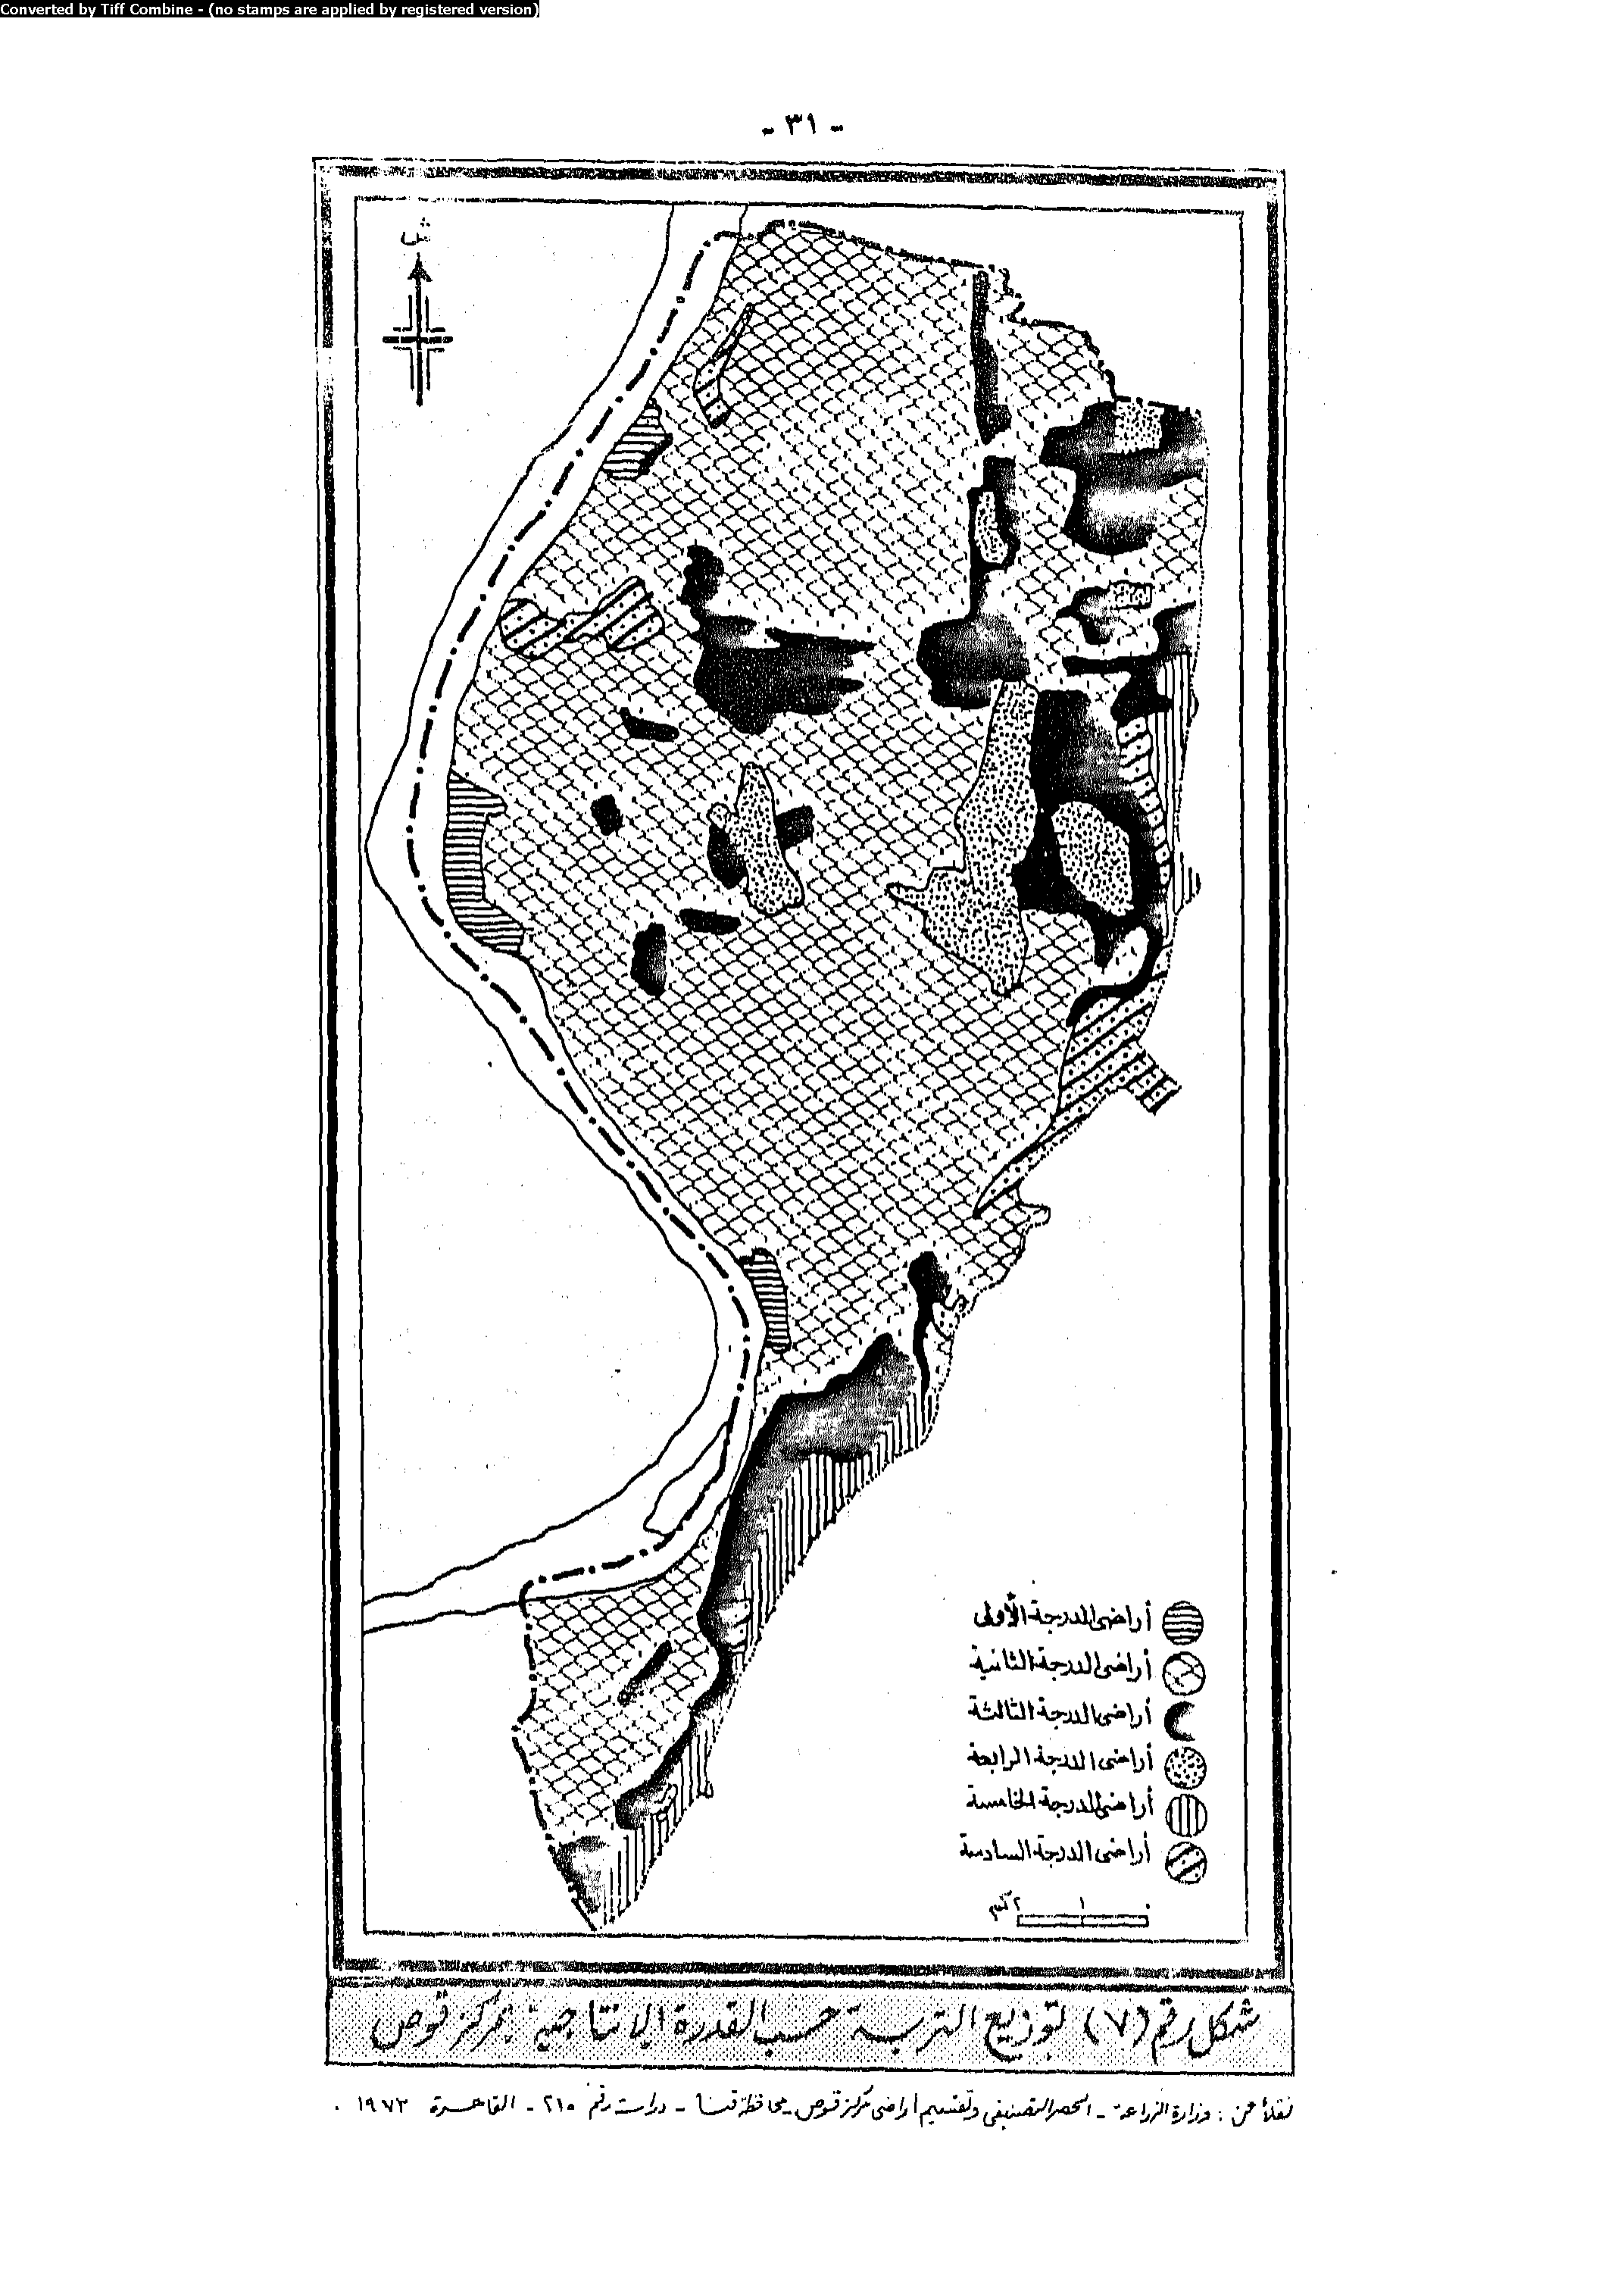 Converted by Tiff Combine - (no stamps are applied by registered version)
- ٣١ -
ش
أراضى الدرجة الأولى
أراضى الدرجة الثانية
أراضى الدرجة الثالثة
أراضى الدرجة الرابعة
أراضى الدرجة الخامسة
أراضى الدرجة السادسة
٠ ١ ٢ كم
شكل رقم (٧) توزيع التربة حسب القدرة الإنتاجية بمركز قوص
نقلاً عن : وزارة الزراعة - الحصر التصنيفى وتقسيم أراضى مركز قوص - محافظة قنا - دراسة رقم ٢١٥ - القاهرة ١٩٧٣ .